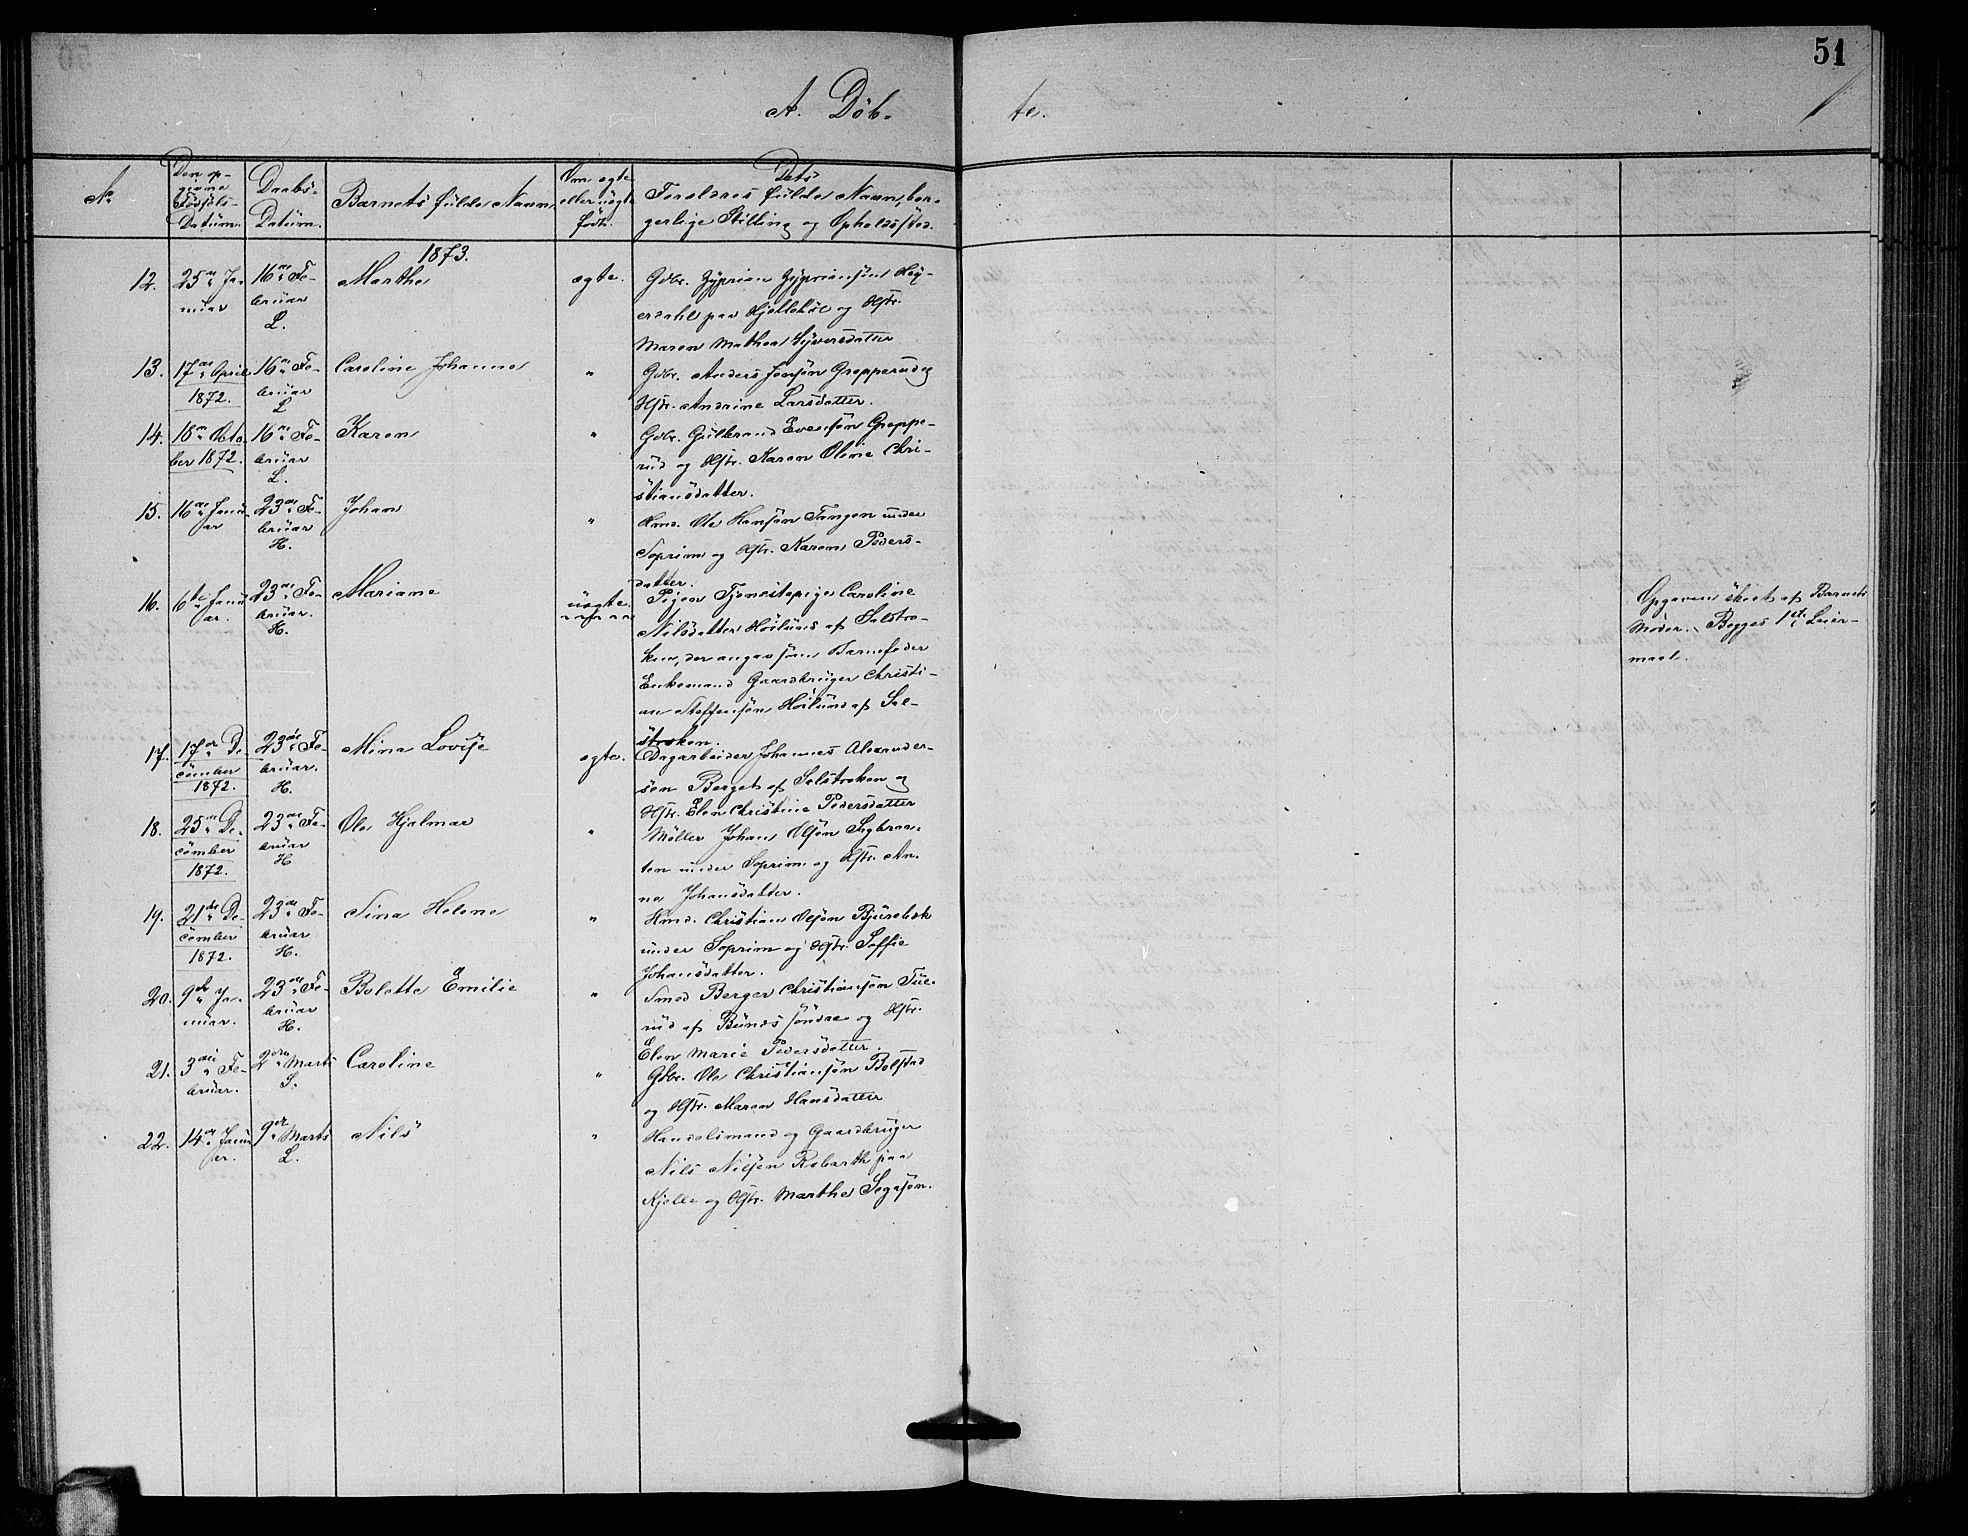 51
A. Döb-
te.
No
Den op-
givne
Födsels-
Datum.
Daabs-
Datum.
Barnets fulde Navn.
Om ægte
eller uægte
födt.
Dets
Forældres fulde Navn, bor-
gerlige Stilling og Opholdssted.
1873.
12. 25de Ja-
nuar
16de Fe-
bruar
L.
Marthe
ægte.
Gdbr. Zyprian Zypriansøn Hey-
erdahl paa Hjellebøl og Hstr.
Maren Mathea Syversdatter
13. 17de April
1872.
16de Fe-
bruar
L
Caroline Johanne
"
Gdbr. Anders Jensøn Gropperud og
Hstr. Andrine Larsdatter.
14. 18de Octo-
ber 1872.
16de Fe-
bruar
L.
Karen
"
Gdbr. Gulbrand Evensøn Groppe-
rud og Hstr. Karen Oline Chri-
stiansdatter.
15. 16de Janu-
ar
23de Fe-
bruar
H.
Johan
"
Hmd. Ole Hansøn Tangen under
Soprim og Hstr. Karen Peders-
datter.
16. 6te Janu-
ar.
23de Fe-
bruar.
H.
Mariane
uægte.
Pigen Tjenestepige Caroline
Nilsdatter Höilund af Solstro-
ken, der angav som Barnefader
Enkemand Gaardbruger Christi-
an Steffensøn Höilund af Sol-
stroken.
Opgaven skeet af Barnets
Moder. Begges 1ste Leier-
maal.
17. 17de De-
cember
1872.
23de Fe-
bruar.
H.
Mina Lovise
ægte.
Dagarbeider Johannes Alexander-
sen Berget af Solstroken og
Hstr. Elen Christine Pedersdatter
18. 25de De-
cember
1872.
23de Fe-
bruar
H
Ole Hjalmar
"
Møller Johan Olsøn Sagbraa-
ten under Soprim og Hstr. An-
ne Johansdatter.
19. 21de De-
cember
1872.
23de Fe-
bruar
H.
Sina Helene
"
Hmd. Christian Olsøn Bjurebæk
under Soprim og Hstr. Soffie
Johansdatter.
20. 9de Ja-
nuar.
23de Fe-
bruar
H.
Bolette Emilie
"
Smed Berger Christiansøn Tue-
rud af Bunæs søndre og Hstr.
Elen Marie Pedersdatter.
21. 3die Fe-
bruar.
2den Marts
S.
Caroline
"
Gdbr. Ole Christiansøn Bolstad
og Hstr. Maren Hansdatter
22. 14de Janu-
ar.
9de Marts
L.
Nils
"
Handelsmand og Gaardbruger
Nils Nilsen Robarth paa
Kjelle og Hstr. Marthe Segasøn.